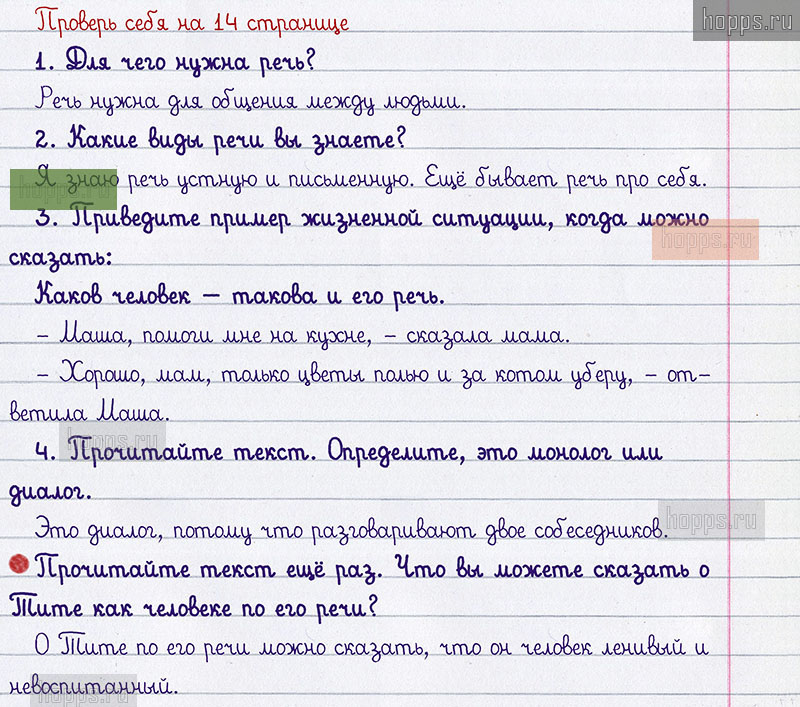 Проверь себя на 14 странице
hopps.ru
1. Для чего нужна речь?
Речь нужна для общения между людьми.
2. Какие виды речи вы знаете?
Я знаю речь устную и письменную. Ещё бывает речь про себя.
hopps.ru
3. Приведите пример жизненной ситуации, когда можно
hopps.ru
сказать:
Каков человек – такова и его речь.
– Маша, помоги мне на кухне, – сказала мама.
– Хорошо, мам, только цветы полью и за котом уберу, – от–
ветила Маша.
hopps.ru
4. Прочитайте текст. Определите, это монолог или
диалог.
Это диалог, потому что разговаривают двое собеседников.
hopps.ru
Прочитайте текст ещё раз. Что вы можете сказать о
Тите как человеке по его речи?
О Тите по его речи можно сказать, что он человек ленивый и
невоспитанный.
hopps.ru